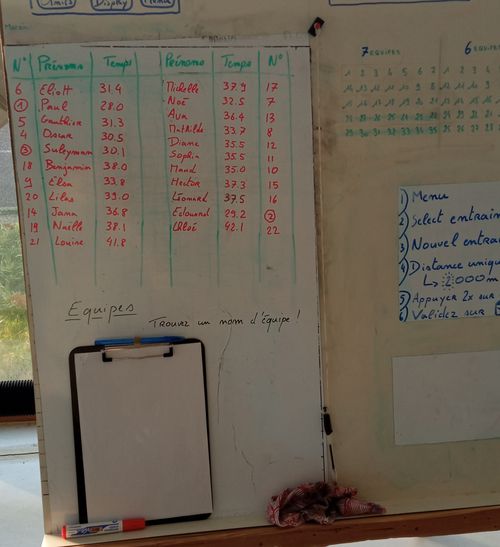 Display
Menu
N° Prénoms Temps Prénoms Temps N°
6 Eliott 31.4 Michelle 37.9 17
1 Paul 28.0 Noé 32.5 7
5 Gauthier 31.3 Ava 36.4 13
4 Oscar 30.5 Mathilde 33.7 8
3 Suleyman 30.1 Diane 35.5 12
18 Benjamin 38.0 Sophia 35.5 11
9 Elon 33.8 Maud 35.0 10
20 Lilas 39.0 Hector 37.3 15
14 Jana 36.8 Léonard 37.5 16
19 Naëlle 38.1 Edouard 29.2 2
21 Louise 41.8 Chloé 42.1 22
Equipes
Trouvez un nom d'équipe !
7 equipes
6 equipes
1 2 3 4 5 6 7 1 2 3 4
29 30 31 32 33 34 35 25 26 27 28
1 Menu
2 Select entraîn
3 Nouvel entra
4 Distance uniqu
↳ 2000m
5 Appuyer 2x sur
6 Validez sur